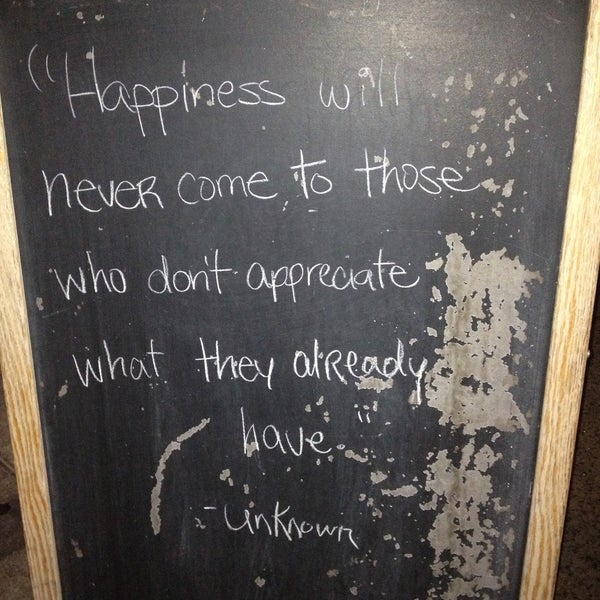 "Happiness will
never come to those
who don't appreciate
what they already
have"
-unknown